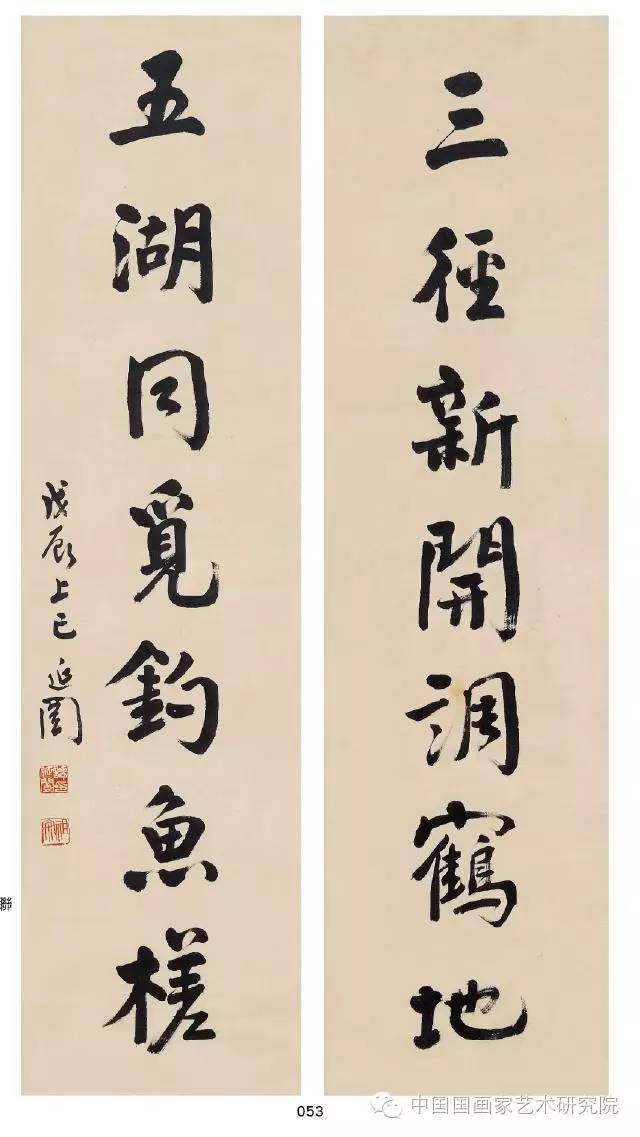 三徑新開調鶴地
五湖同覓釣魚槎
戊辰上巳 延闓
聯
053
中国国画家艺术研究院